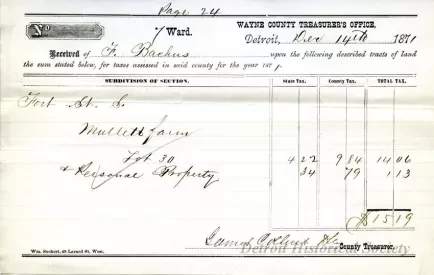 Page 24
No
WAYNE COUNTY TREASURER'S OFFICE,
7 Ward.
Detroit, Dec 14th 1871
Received of F. Backus upon the following described tracts of land
the sum stated below, for taxes assessed in said county for the year 187
SUBDIVISION OF SECTION. State Tax. County Tax. TOTAL TAX.
Fort St. S
Mullett farm
Lot 30 4 22 9 84 14 06
& Personal Property 34 79 1 13
$15.19
County Treasurer.
Wm. Sackert, 49 Larned St. West.
Detroit Historical Society